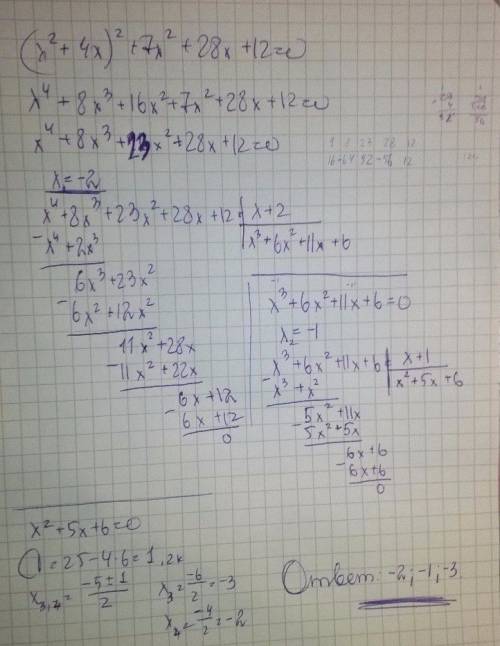 (x² + 4x)² + 7x² + 28x + 12 = 0
x⁴ + 8x³ + 16x² + 7x² + 28x + 12 = 0
x⁴ + 8x³ + 23x² + 28x + 12 = 0
x₁ = -2
x⁴ + 8x³ + 23x² + 28x + 12 | x + 2
- x⁴ + 2x³ | x³ + 6x² + 11x + 6
6x³ + 23x²
- 6x² + 12x²
11x² + 28x
- 11x² + 22x
6x + 12
- 6x + 12
0
x³ + 6x² + 11x + 6 = 0
x₂ = -1
x³ + 6x² + 11x + 6 | x + 1
- x³ + x² | x² + 5x + 6
5x² + 11x
- 5x² + 5x
6x + 6
- 6x + 6
0
x² + 5x + 6 = 0
D = 25 - 4·6 = 1, 2к
x₃,₄ = -5 ± 1 / 2
x₃ = -6 / 2 = -3
x₄ = -4 / 2 = -2
Ответ: -2; -1; -3